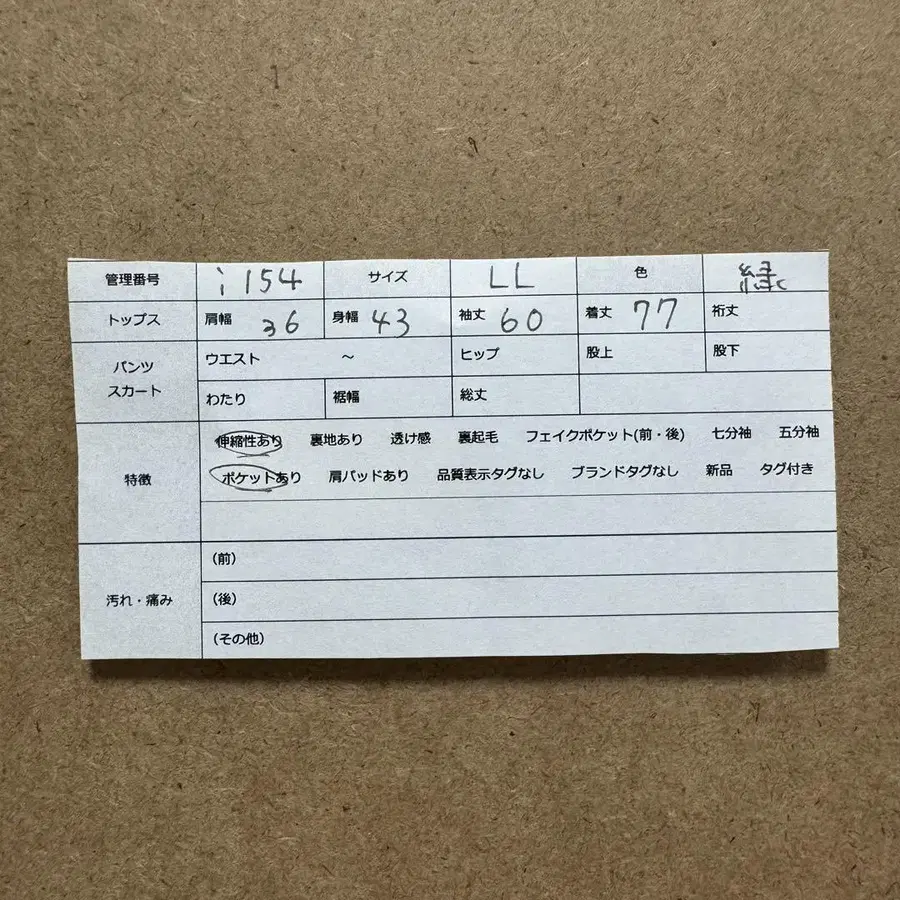 管理番号 i154 サイズ LL 色 緑
トップス 肩幅 36 身幅 43 袖丈 60 着丈 77 裄丈
パンツ ウエスト ～ ヒップ 股上 股下
スカート わたり 裾幅 総丈
特徴 伸縮性あり 裏地あり 透け感 裏起毛 フェイクポケット(前・後) 七分袖 五分袖
ポケットあり 肩パッドあり 品質表示タグなし ブランドタグなし 新品 タグ付き
汚れ・痛み (前)
(後)
(その他)